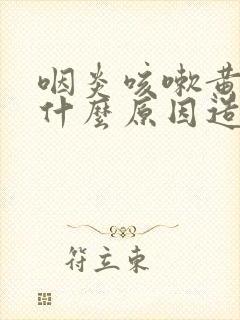 咽炎咳嗽黄
什麼原因造
符立東